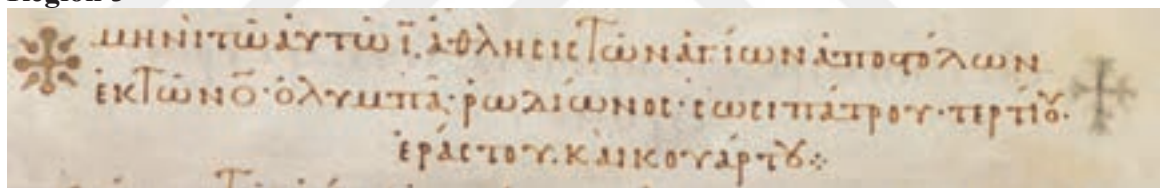 μηνὶ τῶ ἀυτῶ ῑ. ἄθλησις τῶν ἁγίων ἀποστόλων
ἐκ τῶν ο̄· ὀλυμπᾶ· ῥωδίωνος· σωσιπάτρου· τερτίου·
ἐράστου· καὶ κουάρτου